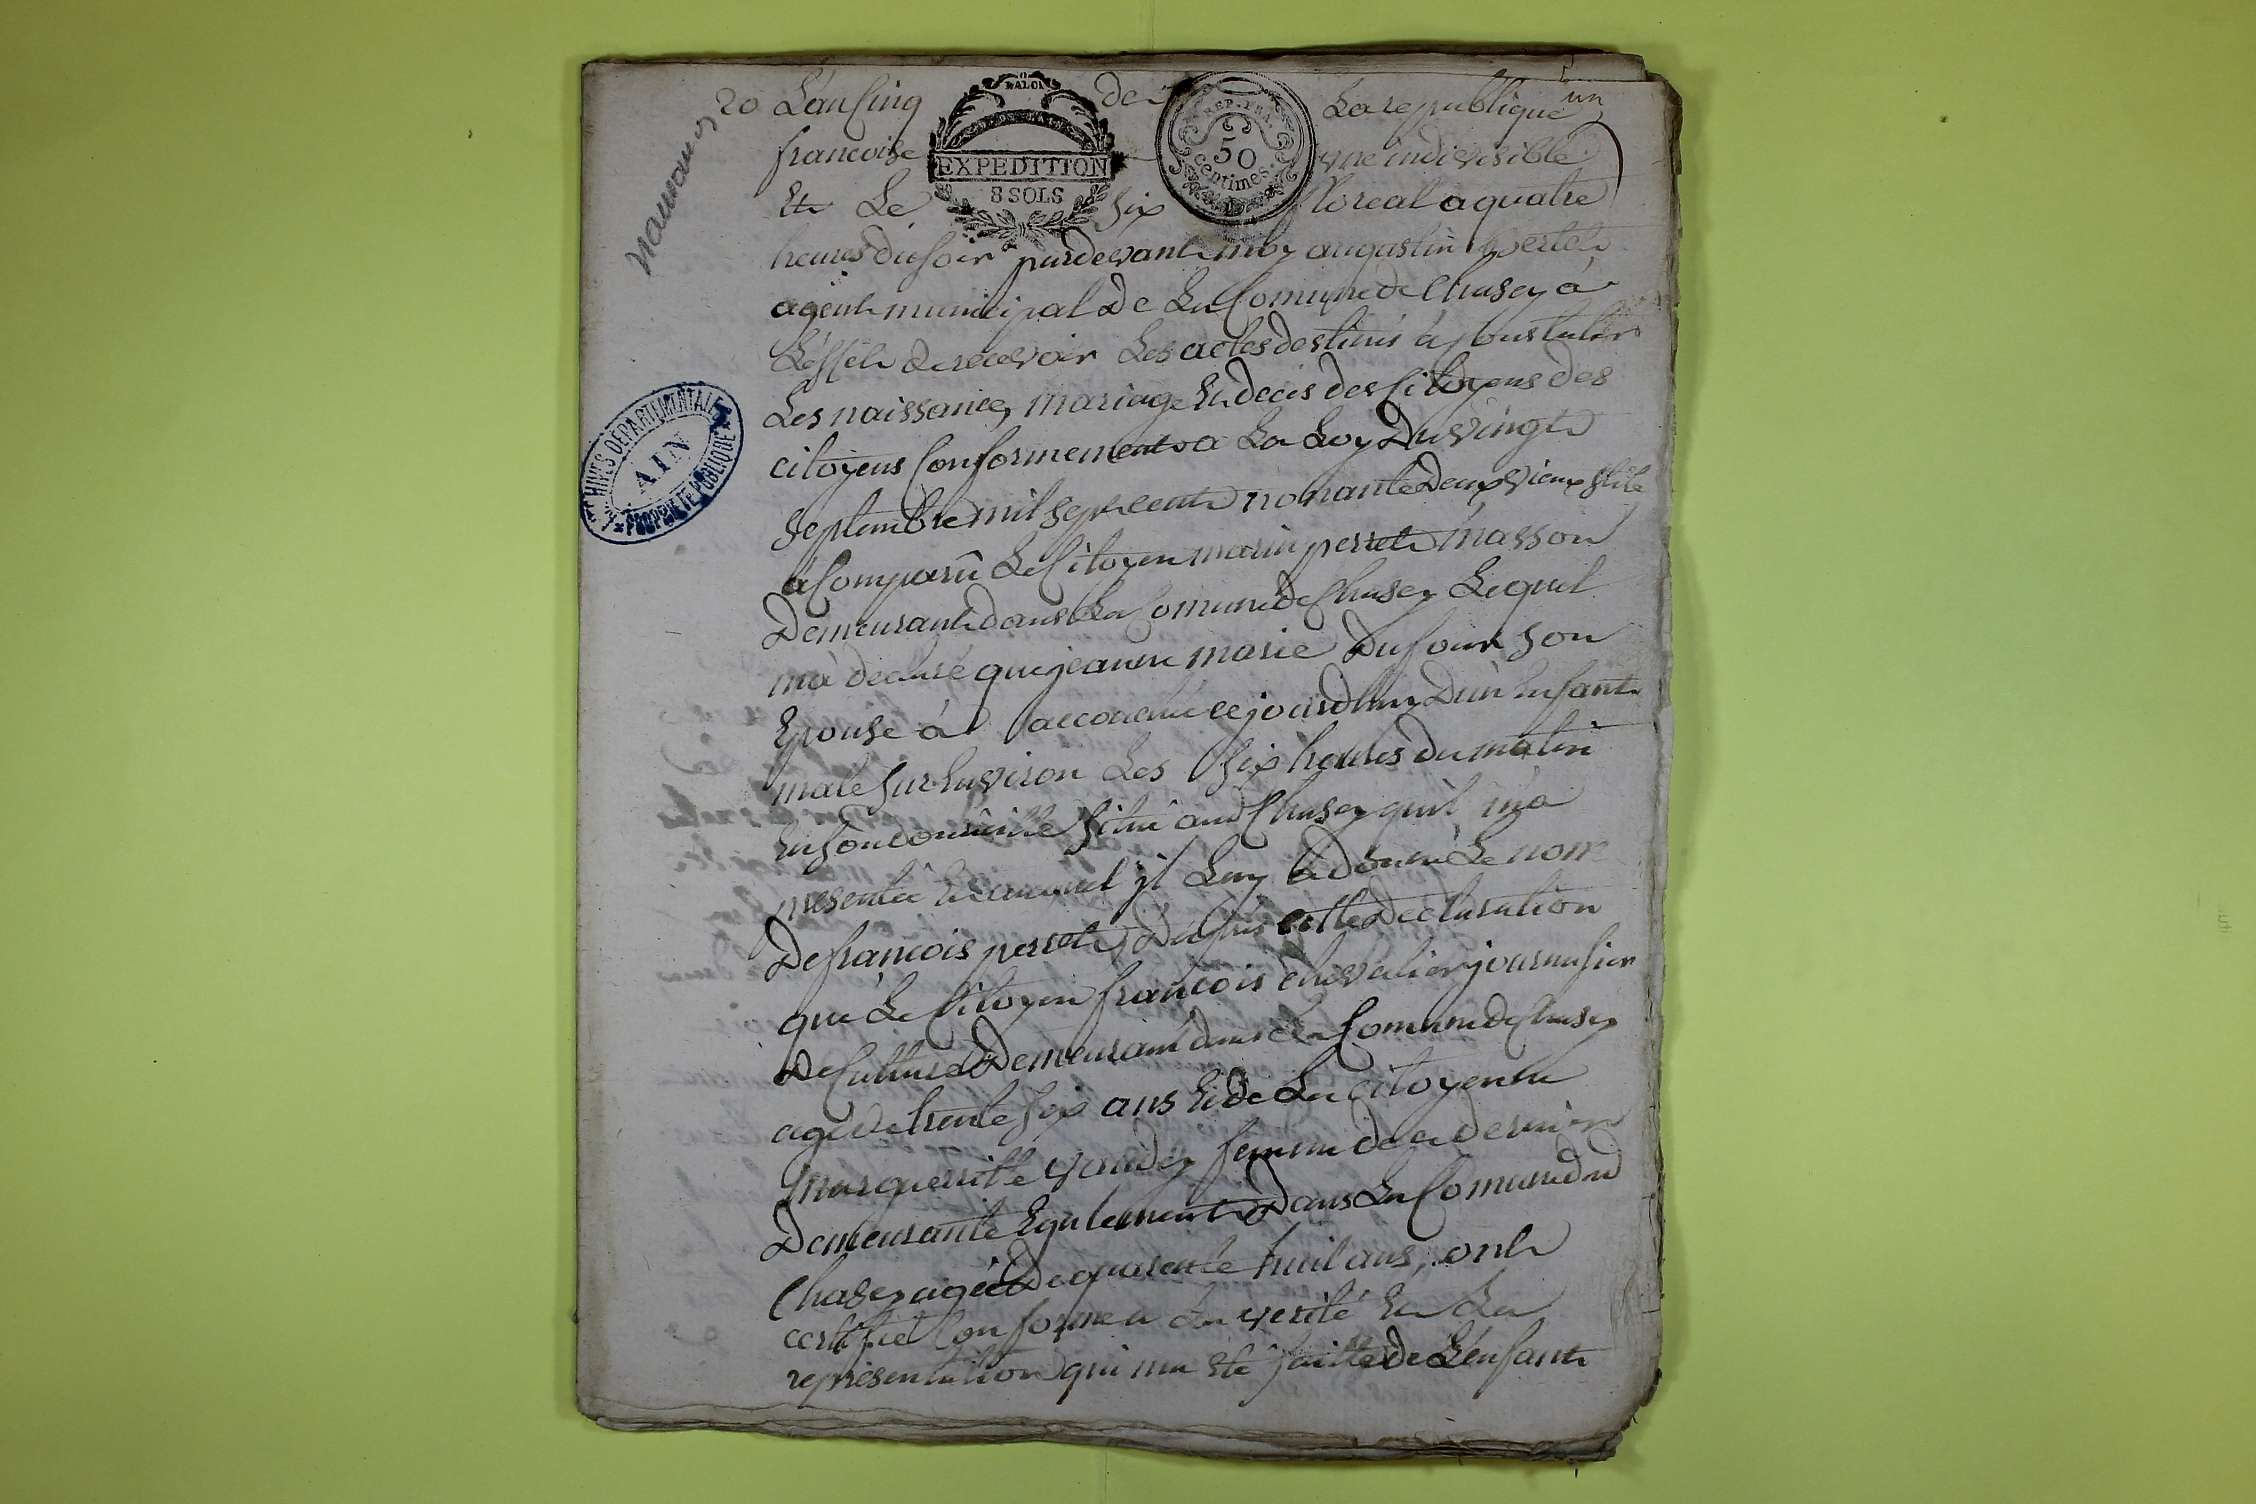 un
20 L'an Cinq de La republique
francoise une indivisible
Et Le six floreal a quatre
heures du soir pardevant moy augustin
agent municipal De La Comune de Chasey à
L'effet de recevoir Les actes destinés à Constater
Les naissance, mariage Et deces des Citoyens des
citoyens Conformement a La Loy Du vingt
septembre mil sept cent nonante Deux vieux stile
à Comparû Le Citoyen marin perret masson
Demeurant dans La Comune de Chasey Lequel
m'a declaré que jeanne marie Dufour son
Epouse à accouché cejourdhuy D'un Enfant
male sur Environ Les six heures du matin
En son domicille situé aud Chasey quil m'a
presenté Et auquel jl Luy à donné Le nom
De francois perret, Depuis cette Declaration
que Le Citoyen francois chevalier journalier
De Culture Demeurant dans La Comune de Chasey
agé de trente six ans Et de La citoyenne
margueritte femme de ce dernier
Demeurante Egalement Dans La Comune dud
Chasey agée De quarente huit ans, ont
certifié Conforme a La verité Et La
representation qui ma été faitte de L'enfant
naissance
LA LOI
EXPEDITION
8 SOLS
REP. FRA.
50
centimes.
ARCHIVES DÉPARTEMENTALES
AIN
PROPRIÉTÉ PUBLIQUE